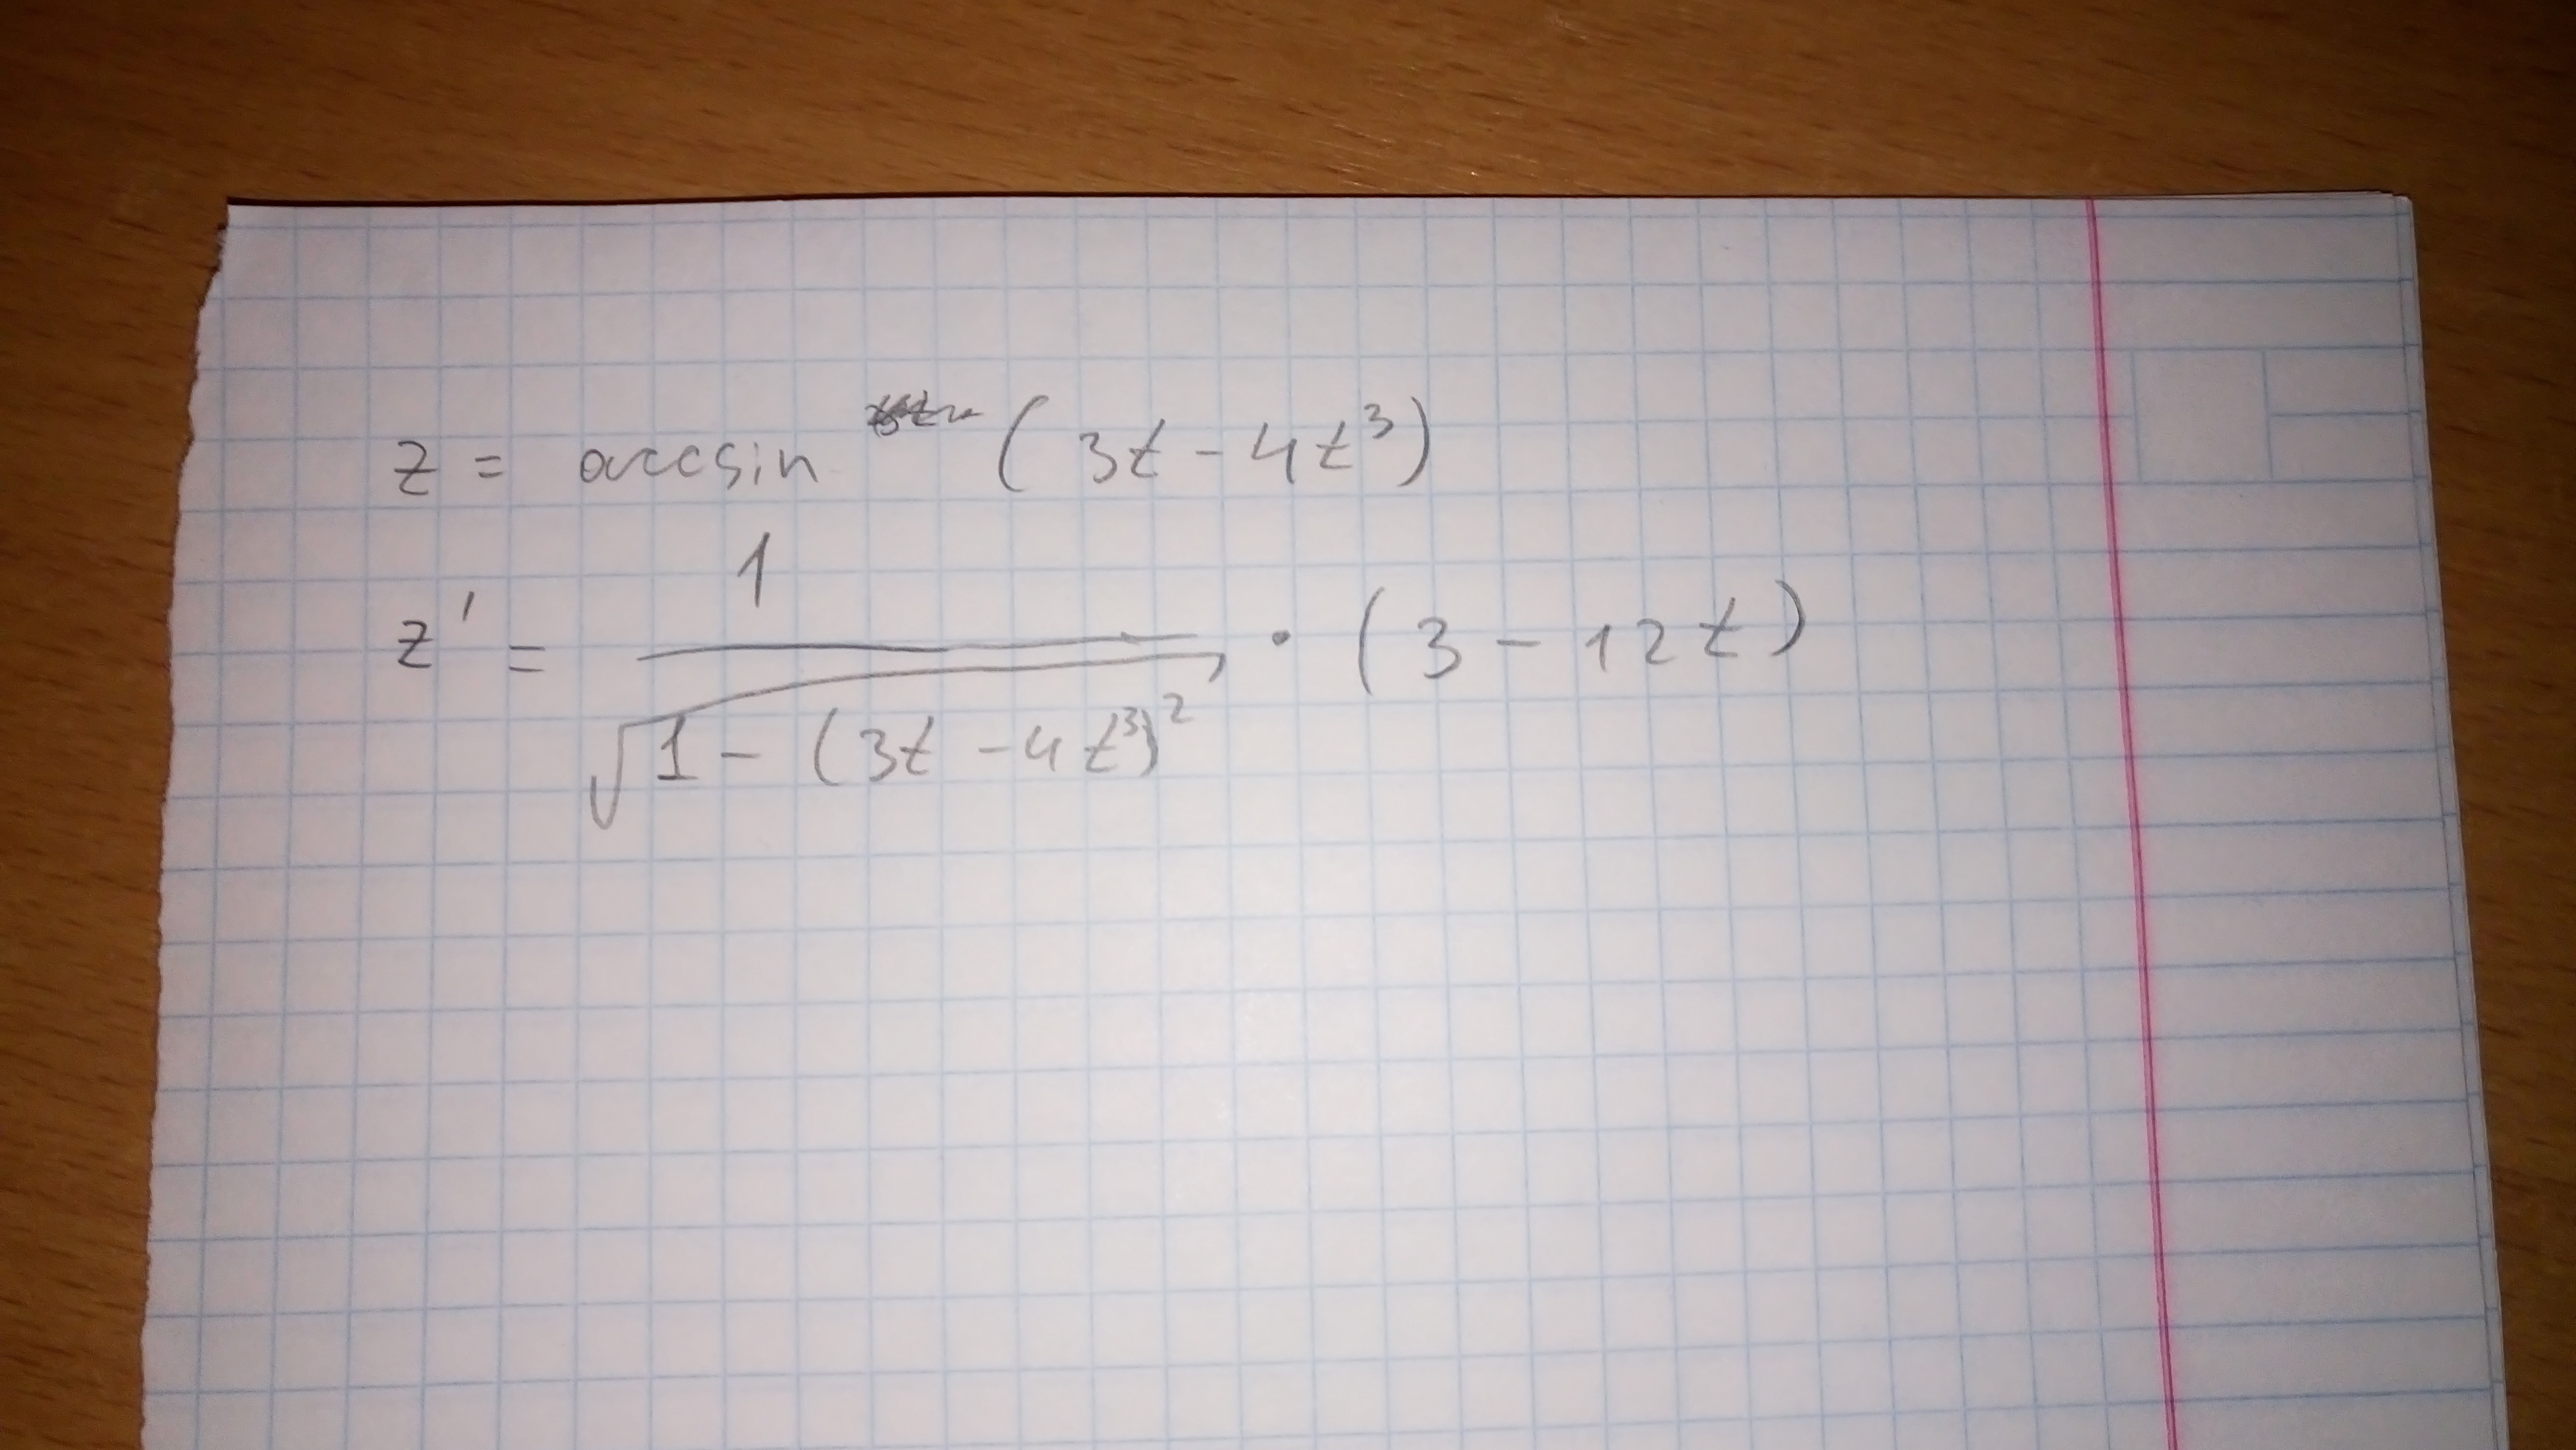 z = arcsin (3t - 4t³)
z' = 1 / √(1 - (3t - 4t³)²) · (3 - 12t)